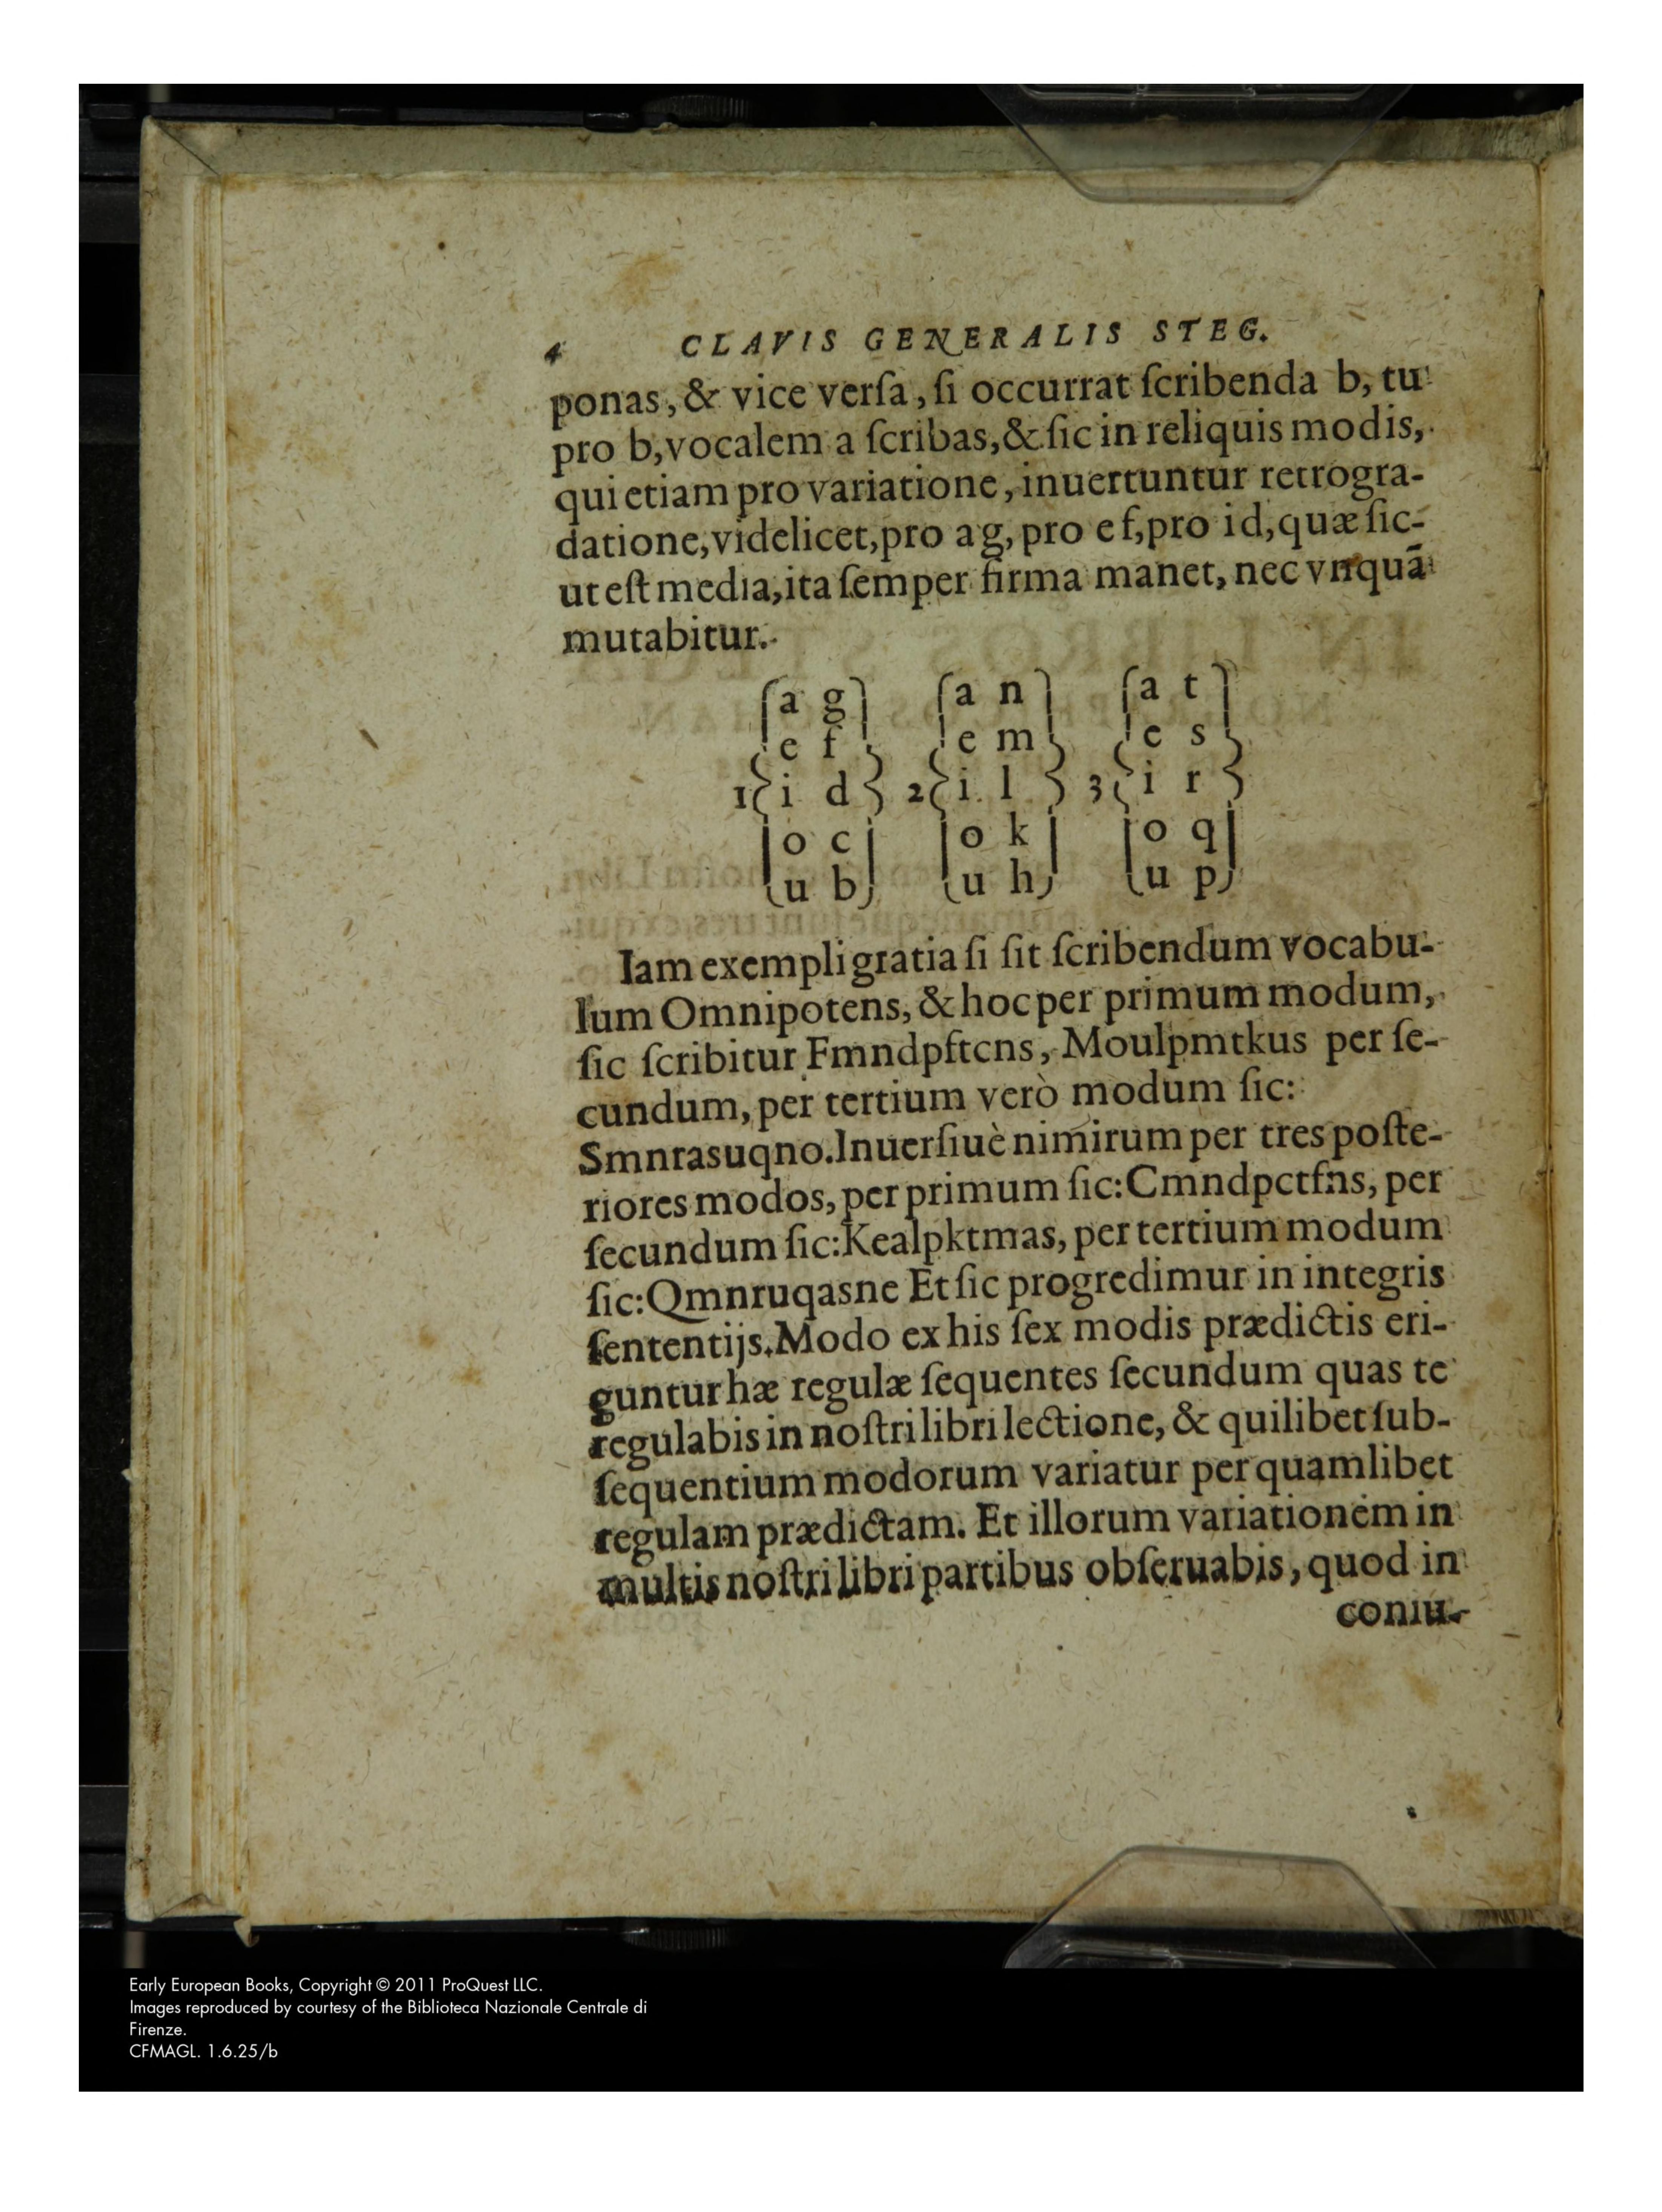 4 CLAVIS GENERALIS STEG.
ponas, & vice verſa, ſi occurrat ſcribenda b, tu
pro b, vocalem a ſcribas, & ſic in reliquis modis,
qui etiam pro variatione, inuertuntur retrogra-
datione, videlicet, pro a g, pro e f, pro i d, quæ ſic-
ut eſt media, ita ſemper firma manet, nec vnquā
mutabitur.
a g a n a t
e f e m e s
1 i d 2 i l 3 i r
o c o k o q
u b u h u p
Iam exempli gratia ſi ſit ſcribendum vocabu-
lum Omnipotens, & hoc per primum modum,
ſic ſcribitur Fmndpftcns, Moulpmtkus per ſe-
cundum, per tertium verò modum ſic:
Smnrasuqno. Inuerſiuè nimirum per tres poſte-
riores modos, per primum ſic: Cmndpctfns, per
ſecundum ſic: Kealpktmas, per tertium modum
ſic: Qmnruqasne Et ſic progredimur in integris
ſententijs. Modo ex his ſex modis prædictis eri-
guntur hæ regulæ ſequentes ſecundum quas te
regulabis in noſtri libri lectione, & quilibet ſub-
ſequentium modorum variatur per quamlibet
regulam prædictam. Et illorum variationem in
multis noſtri libri partibus obſeruabis, quod in
coniu-
Early European Books, Copyright © 2011 ProQuest LLC.
Images reproduced by courtesy of the Biblioteca Nazionale Centrale di
Firenze.
CFMAGL. 1.6.25/b